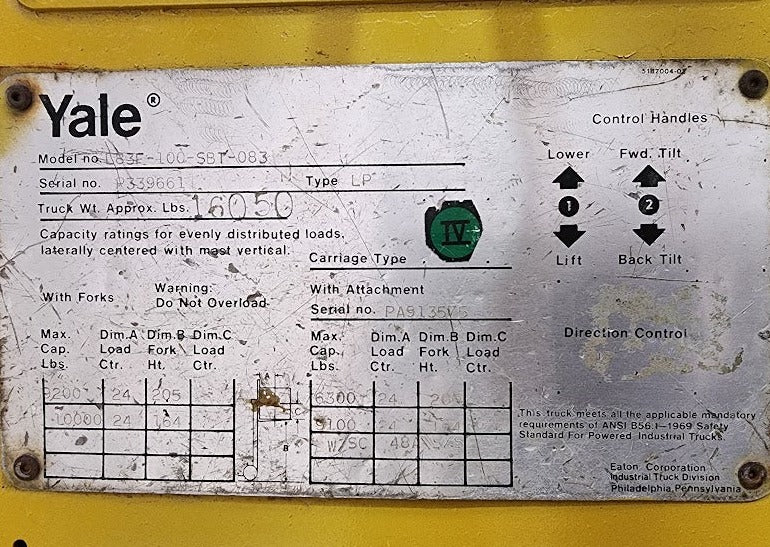 5187004-02
Yale®
Control Handles
Model no. L83F-100-SBT-083
Lower Fwd. Tilt
Serial no. P339661 Type LP
Truck Wt. Approx. Lbs. 16050
1 2
Capacity ratings for evenly distributed loads,
laterally centered with mast vertical.
IV
Carriage Type
Lift Back Tilt
With Forks
Warning:
Do Not Overload
With Attachment
Serial no.
Direction Control
Max. Dim.A Dim.B Dim.C
Cap. Load Fork Load
Lbs. Ctr. Ht. Ctr.
9200 24 205
10000 24 164
A
C
B
Max. Dim.A Dim.B Dim.C
Cap. Load Fork Load
Lbs. Ctr. Ht. Ctr.
6300 24
9100
W/SC
This truck meets all the applicable mandatory
requirements of ANSI B56.1—1969 Safety
Standard For Powered Industrial Trucks.
Eaton Corporation
Industrial Truck Division
Philadelphia, Pennsylvania